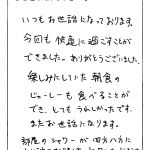 いつもお世話になっております。
今回も快適に過ごすことが
できました。ありがとうございました。
楽しみにしていた朝食の
ジューレーも食べることが
でき、とてもうれしかったです。
またお世話になります。
部屋のシャワーが四方八方に